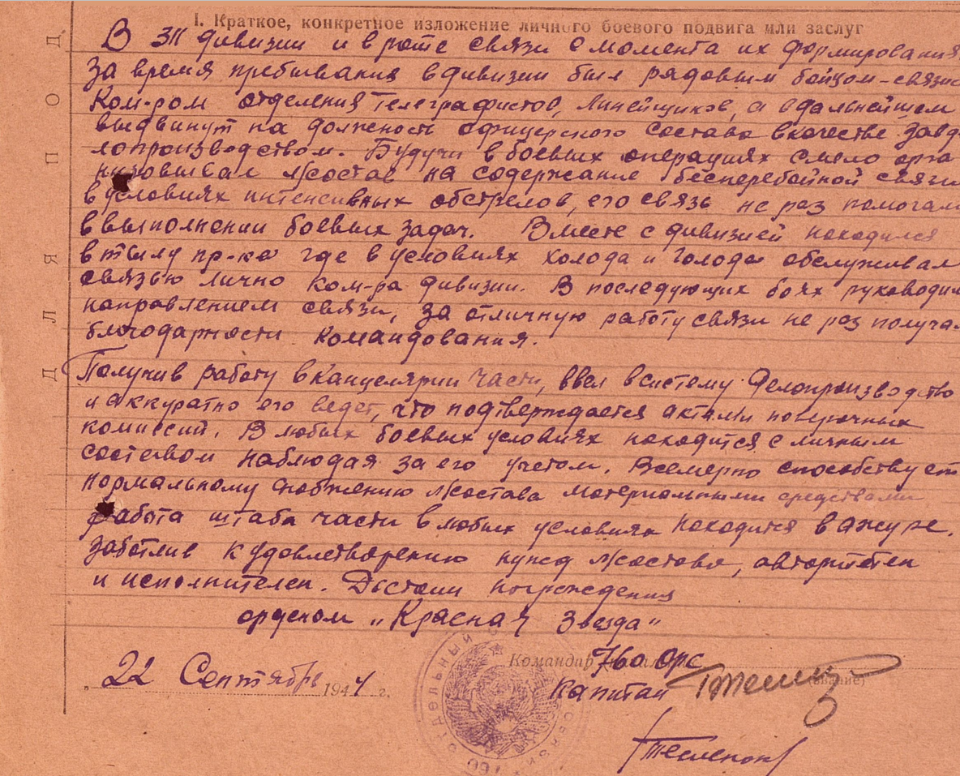 I. Краткое, конкретное изложение личного боевого подвига или заслуг
В 311 дивизии и в роте связи с момента их формирования
За время пребывания в дивизии был рядовым бойцом-связис
Ком-ром отделения телеграфистов, линейщиков, а в дальнейшем
выдвинут на должность офицерского состава в качестве завде
лопроизводством. Будучи в боевых операциях смело орга
низовывал л/состав на содержание бесперебойной связи
в условиях интенсивных обстрелов, его связь не раз помогала
в выполнении боевых задач. Вместе с дивизией находился
в тылу пр-ка где в условиях холода и голода обслуживал
связью лично ком-ра дивизии. В последующих боях руководил
направлением связи, за отличную работу связи не раз получал
благодарности командования.
Получив работу в канцелярии части, ввел в систему делопроизводство
и аккуратно его ведет, что подтверждается актами поверочных
комиссий. В любых боевых условиях находится с личным
составом наблюдая за его учетом. Всемерно способствует
нормальному снабжению л/состава материальными средствами
Работа штаба части в любых условиях находится в ажуре.
Заботлив к удовлетворению нужд л/состава, авторитетен
и исполнителен. Достоин награждения
орденом „Красная Звезда"
Командир 760 орс
22 Сентября 1944 г.
Капитан
(звание)
ОТДЕЛЬНЫЙ
760
ДЛЯ ПОД